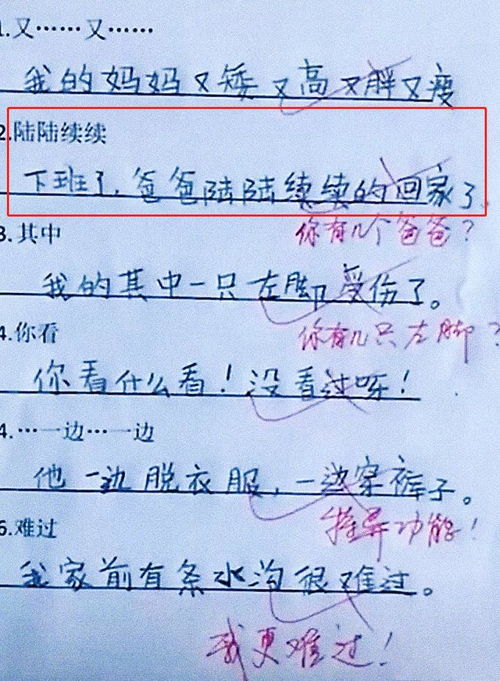 1.又……又……
我的妈妈又矮又高又胖又瘦
2.陆陆续续
下班了，爸爸陆陆续续的回家了。
3.其中
你有几个爸爸？
我的其中一只左脚受伤了。
4.你看
你有几只左脚？
你看什么看！没看过呀！
4.…一边…一边
他一边脱衣服，一边穿裤子。
5.难过
特异功能！
我家前有条水沟很难过。
我更难过！